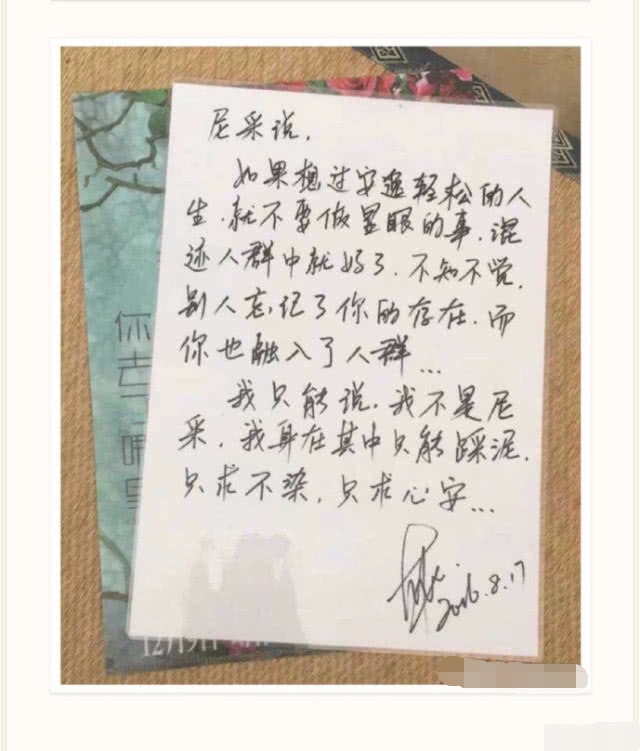 尼采说,
如果想过安逸轻松的人
生.就不要做显眼的事.混
迹人群中就好了.不知不觉,
别人忘记了你的存在.而
你也融入了人群...
我只能说.我不是尼
采,我身在其中只能踩泥,
只求不染,只求心安...
2016.8.17
你
幸
12月19日